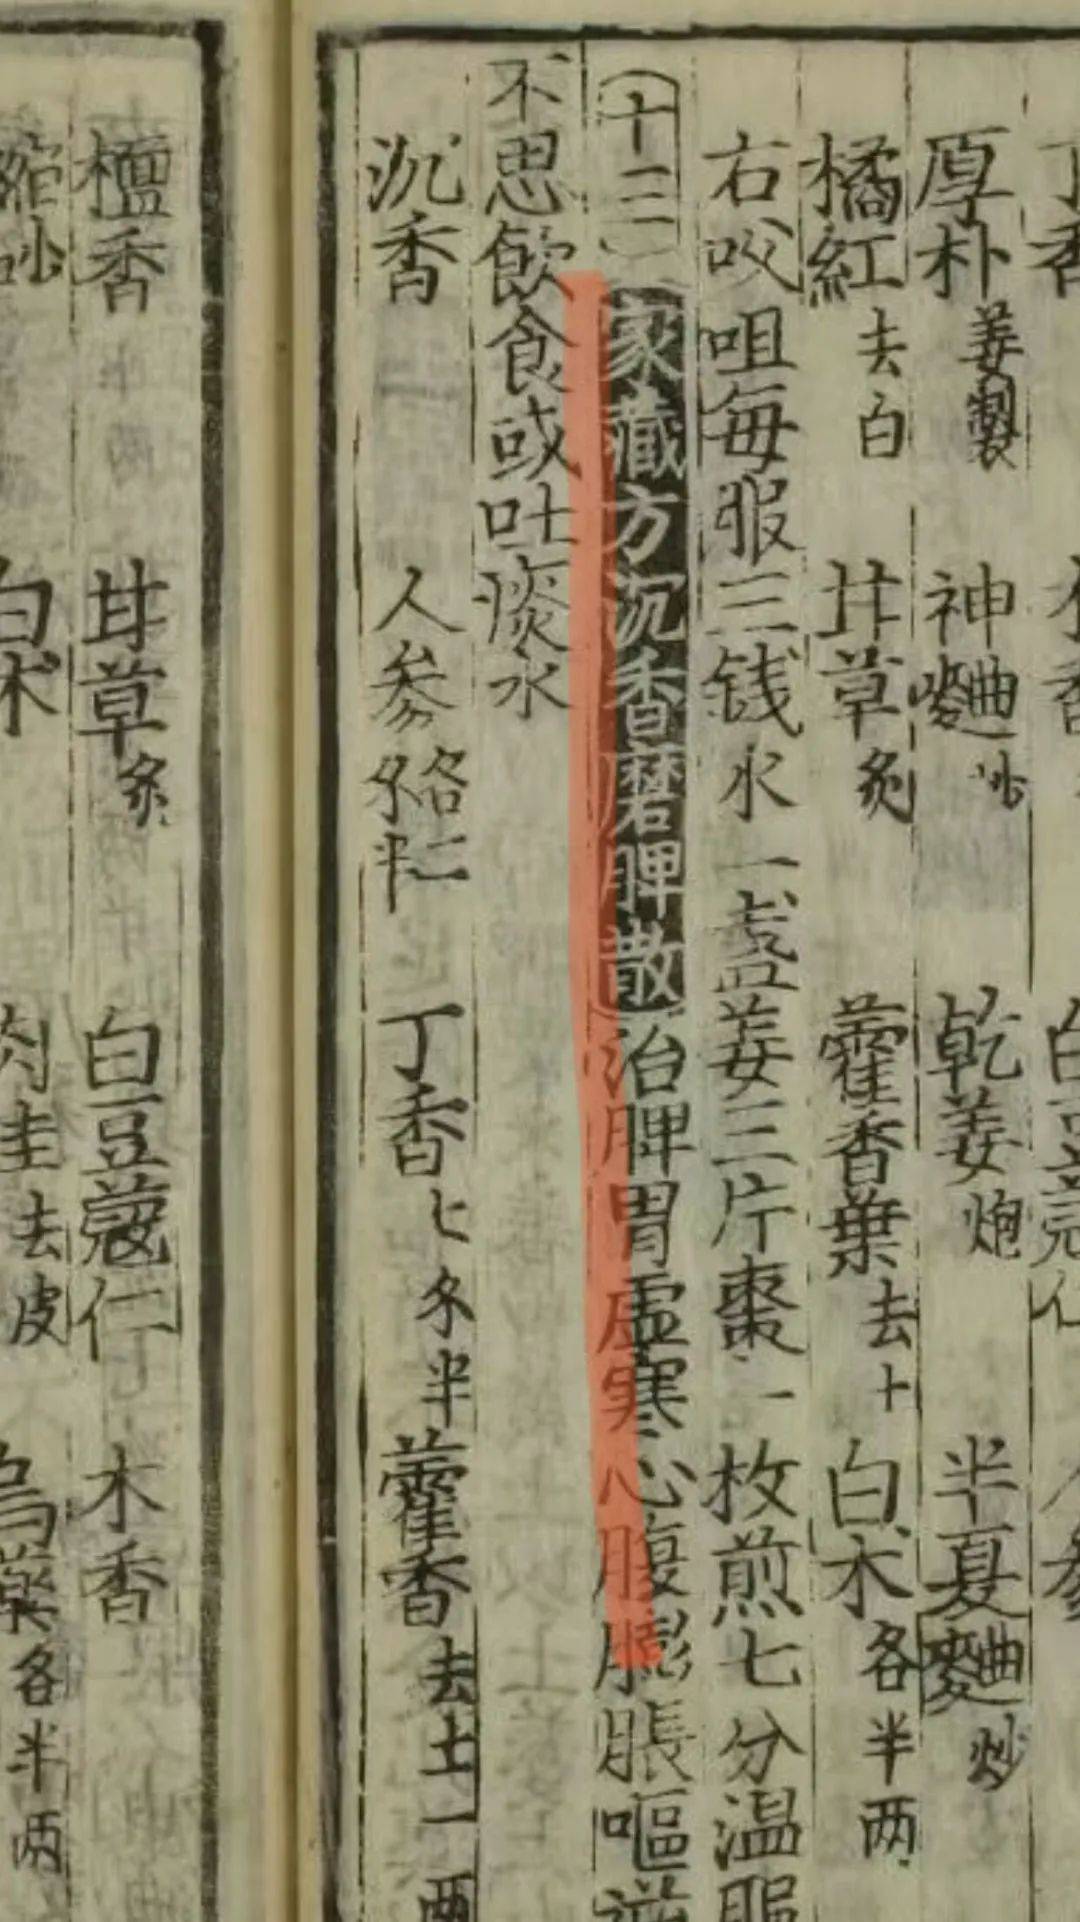 丁香
厚朴姜製 神麯炒 乾姜炮 半夏麯炒
橘紅去白 甘草炙 藿香葉去十 白术各半两
右㕮咀每服三钱水一盏姜三片棗一枚煎七分温服
(十三)(家藏方沉香磨脾散)治脾胃虛寒心腹膨脹嘔逆
不思飲食或吐痰水
沉香 人参 丁香七 半 藿香去土一两
檀香 甘草炙 白豆蔻仁 木香
縮砂 白术 肉桂去皮 烏藥各半两